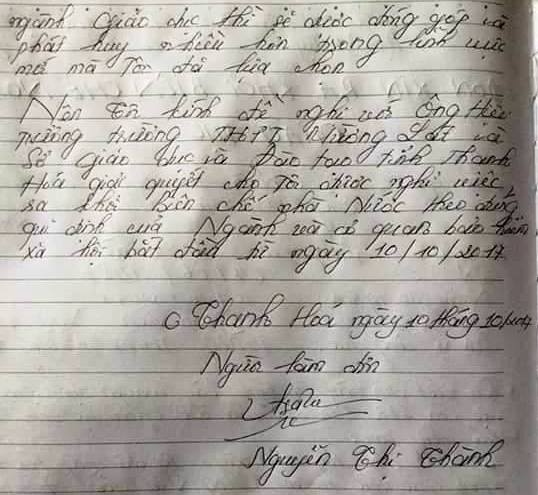 ngành Giáo dục thì sẽ được đóng góp và
phát huy nhiều hơn trong lĩnh vực
mới mà Tôi đã lựa chọn
Nên Tôi kính đề nghị với Ông Hiệu
trưởng trường THPT Mường Lát và
Sở Giáo dục và Đào tạo tỉnh Thanh
Hoá giải quyết cho Tôi được nghỉ việc,
ra khỏi biên chế nhà Nước theo đúng
qui định của Ngành và cơ quan bảo hiểm
xã hội bắt đầu từ ngày 10/10/2017
Thanh Hoá ngày 10 tháng 10/2017
Người làm đơn
Nguyễn Thị Thành